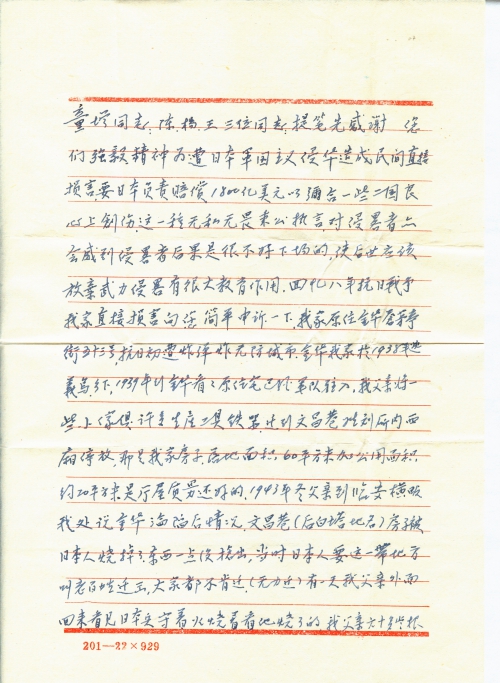 童增同志,陈、杨、王三位同志,提笔先感谢 您
们强毅精神为遭日本军国主义侵华造成民间直接
损害,要日本负责赔偿1800亿美元以弥合一些二国民
心上创伤,这一种无私无畏来公执言,对侵害者亦
会感到侵害者后果是很不好下场的,使后世应该
放弃武力侵害有很大教育作用。回忆八年抗日战争
我家直接损害向您简单申诉一下,我家原住金华
街五十三号,抗日初遭炸弹炸无防城市金华我家于1938年逃
义乌乡下,1939年
 我父亲将一
些小傢俱许多生产工具铁器 文昌巷 内西
厢停放,那是我家房子,落地面积,60平方米加公用面积
约20平方米是厅屋质量还好的,1943年冬父亲到临安横畈
我处说金华沦陷后情况,文昌巷(后白塔地名)房子被
日本人烧掉,东西一点没抢出,当时日本人要这一带地方
叫老百姓迁出,大家都不肯迁(无力迁)有一天我父亲外面
回来看见日本兵守着火烧看着地烧了的,我父亲六十多岁
201—22×929